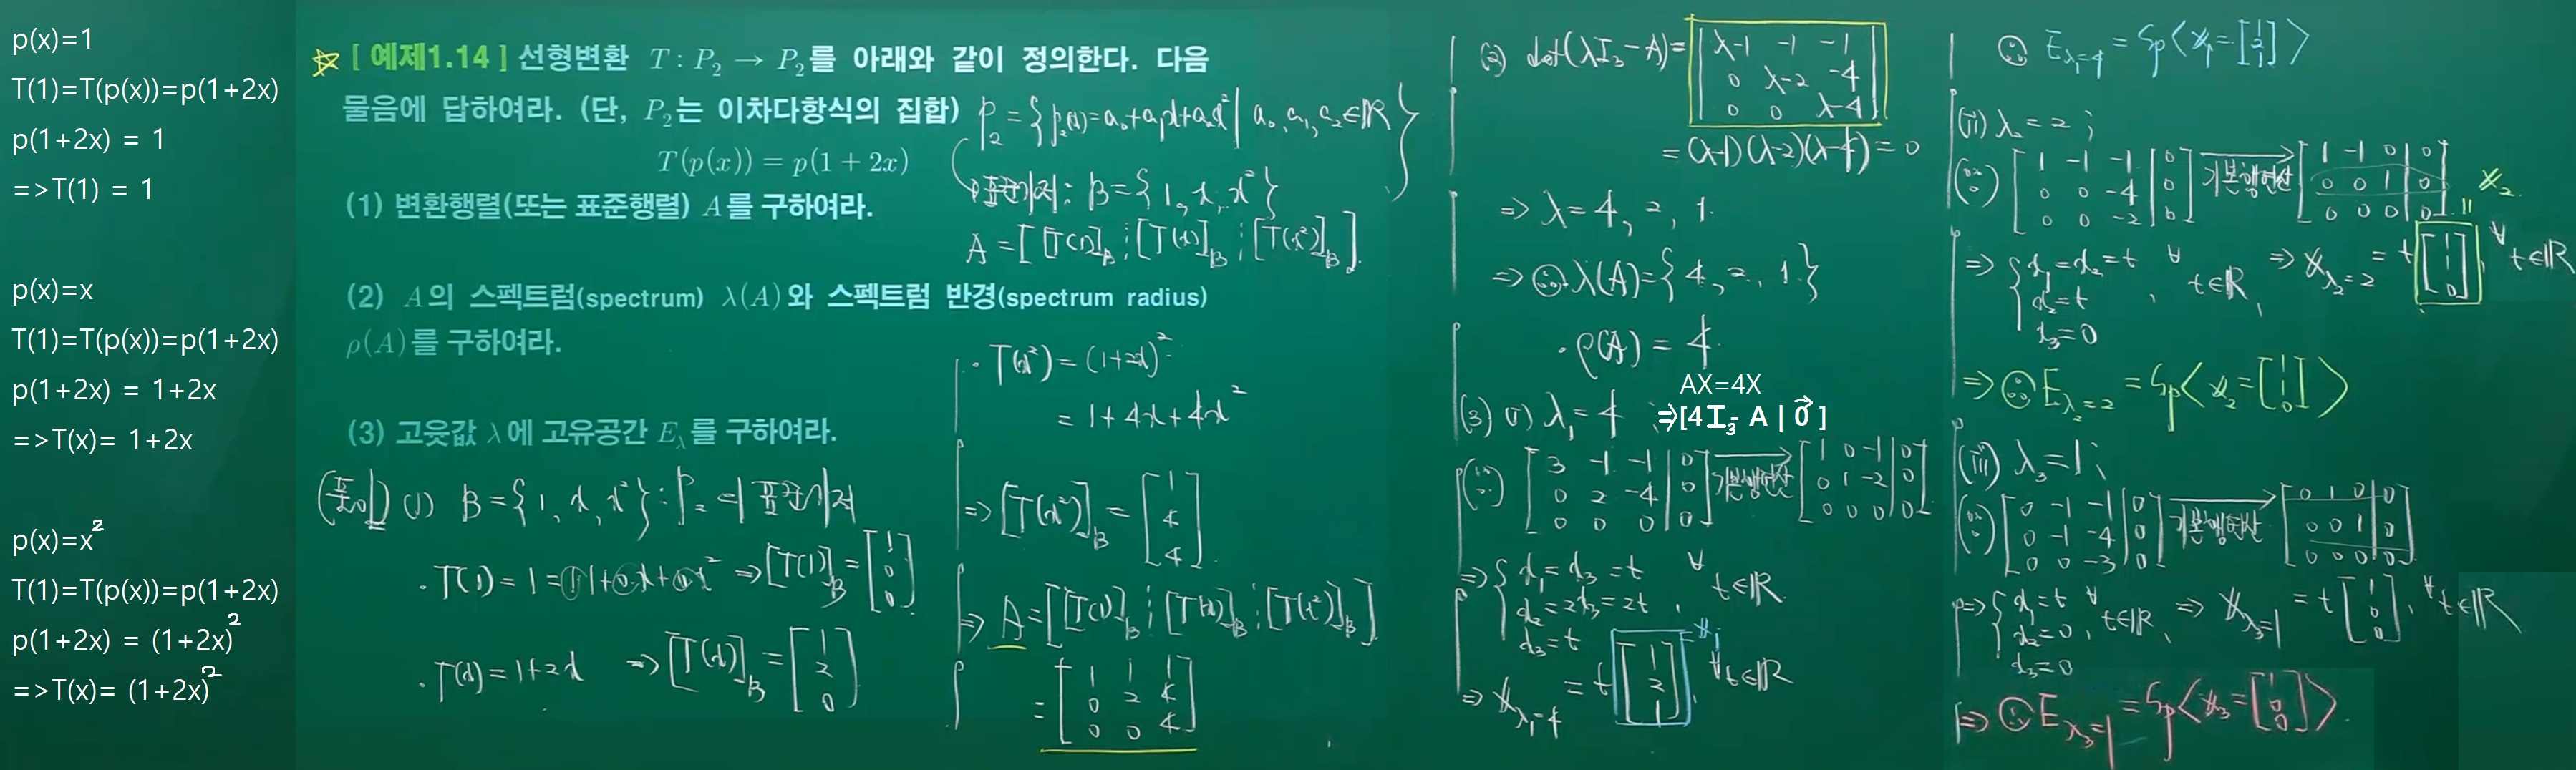 p(x)=1
T(1)=T(p(x))=p(1+2x)
p(1+2x) = 1
=>T(1) = 1
p(x)=x
T(1)=T(p(x))=p(1+2x)
p(1+2x) = 1+2x
=>T(x)= 1+2x
p(x)=x²
T(1)=T(p(x))=p(1+2x)
p(1+2x) = (1+2x)²
=>T(x)= (1+2x)²
☆[ 예제1.14 ] 선형변환 T : P₂ → P₂를 아래와 같이 정의한다. 다음
물음에 답하여라. (단, P₂는 이차다항식의 집합)
T(p(x)) = p(1 + 2x)
(1) 변환행렬(또는 표준행렬) A를 구하여라.
(2) A의 스펙트럼(spectrum) λ(A)와 스펙트럼 반경(spectrum radius)
ρ(A)를 구하여라.
(3) 고윳값 λ에 고유공간 E_λ를 구하여라.
P₂ = { p₂(x) = a₀+a₁x+a₂x² | a₀, a₁, a₂∈ℝ }
표준기저: B={1, x, x²}
A = [ [T(1)]_B ⋮ [T(x)]_B ⋮ [T(x²)]_B ]
(풀이) (1) B = {1, x, x²} : P₂의 표준기저
· T(1) = 1 = 1·1+0·x+0·x² ⇒ [T(1)]_B = [1 0 0]
· T(x) = 1+2x ⇒ [T(x)]_B = [1 2 0]
· T(x²) = (1+2x)²
= 1+4x+4x²
⇒ [T(x²)]_B = [1 4 4]
⇒ A = [ [T(1)]_B ⋮ [T(x)]_B ⋮ [T(x²)]_B ]
= [1 1 1
0 2 4
0 0 4]
(2) det(λI₃-A) = |λ-1 -1 -1
0 λ-2 -4
0 0 λ-4|
= (λ-1)(λ-2)(λ-4) = 0
⇒ λ = 4, 2, 1.
⇒ ∴ λ(A) = {4, 2, 1}
· ρ(A) = 4
AX=4X
(3) (i) λ₁ = 4 ; ⇒[4I₃- A | 0⃗ ]
(∵) [3 -1 -1 | 0
0 2 -4 | 0
0 0 0 | 0] 기본행연산 → [1 0 -1 | 0
0 1 -2 | 0
0 0 0 | 0]
⇒ { x₁ = x₃ = t
x₂ = 2x₃ = 2t , ∀t∈ℝ
x₃ = t
⇒ x_λ₁=4 = t [1 2 1] = x₁, ∀t∈ℝ
∴ E_λ₁=4 = Sp< x₁ = [1 2 1] >
(ii) λ₂ = 2 ;
(∵) [1 -1 -1 | 0
0 0 -4 | 0
0 0 -2 | 0] 기본행연산 → [1 -1 0 | 0
0 0 1 | 0
0 0 0 | 0]
x₂
⇒ { x₁ = x₂ = t
x₂ = t , ∀t∈ℝ,
x₃ = 0
⇒ x_λ₂=2 = t [1 1 0], ∀t∈ℝ
⇒ ∴ E_λ₂=2 = Sp< x₂ = [1 1 0] >
(iii) λ₃ = 1 ;
(∵) [0 -1 -1 | 0
0 -1 -4 | 0
0 0 -3 | 0] 기본행연산 → [0 1 0 | 0
0 0 1 | 0
0 0 0 | 0]
⇒ { x₁ = t
x₂ = 0 , ∀t∈ℝ,
x₃ = 0
⇒ x_λ₃=1 = t [1 0 0], ∀t∈ℝ
⇒ ∴ E_λ₃=1 = Sp< x₃ = [1 0 0] >